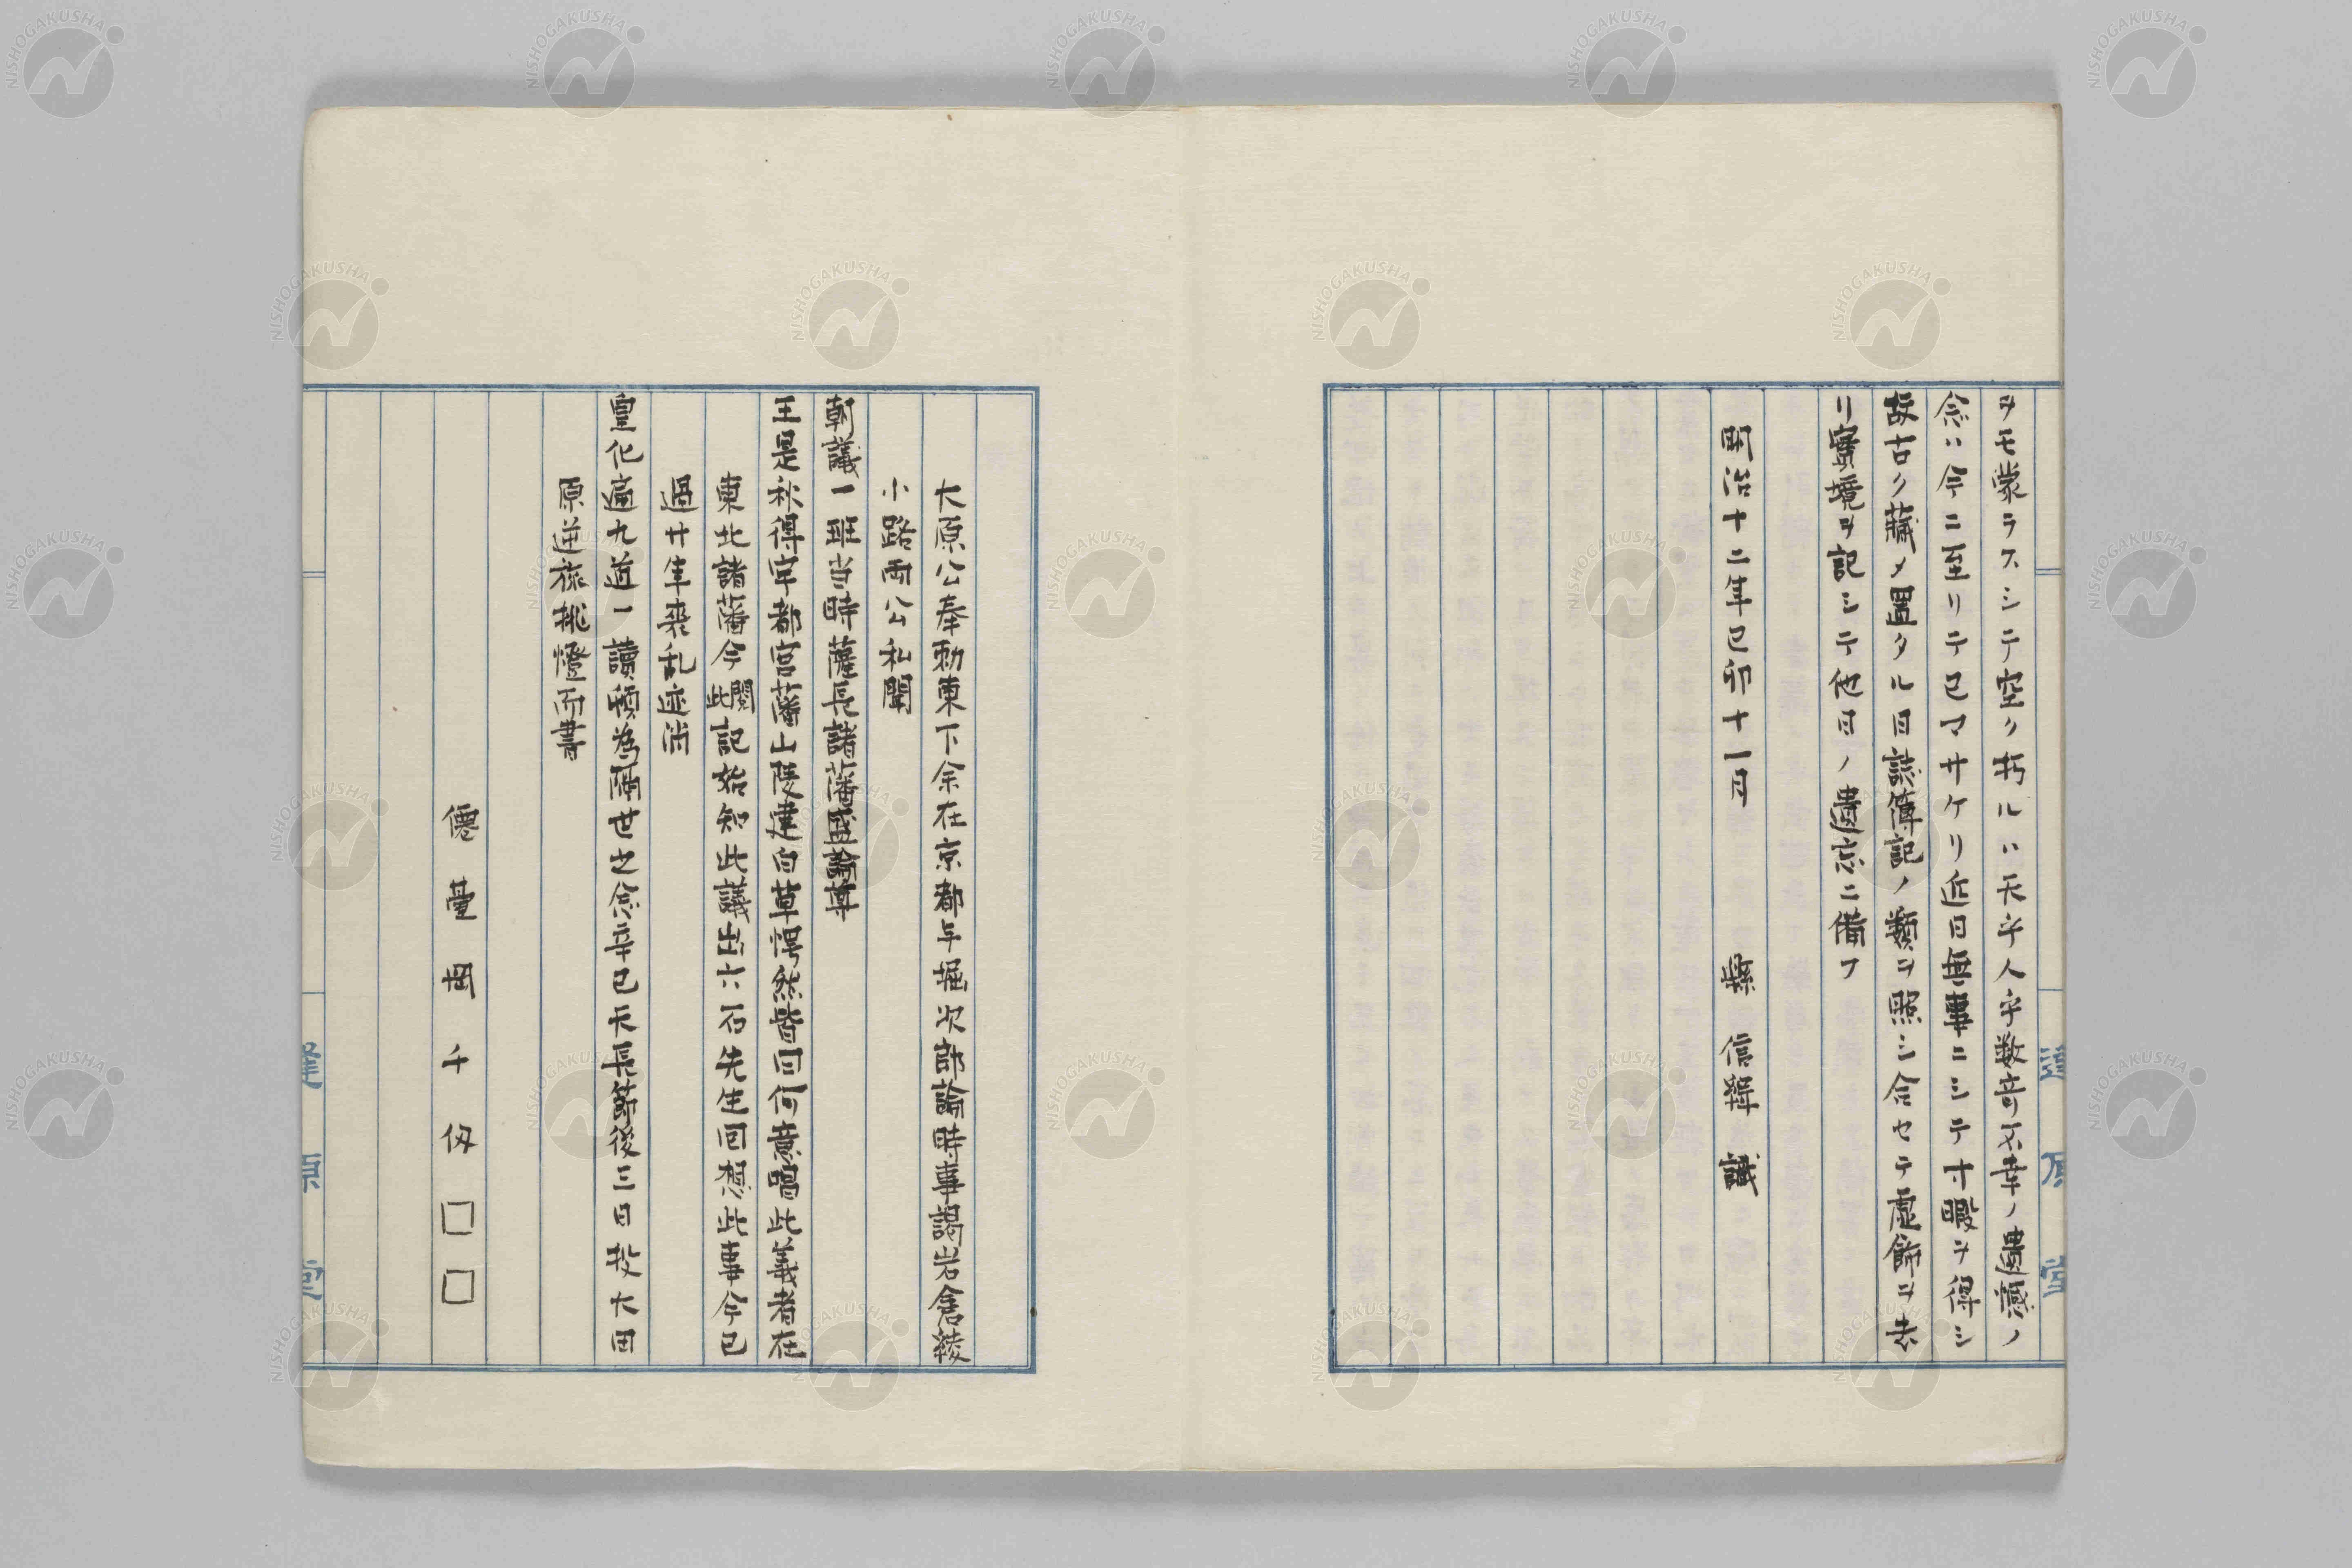 ヲモ蒙ラスシテ空ク朽ルハ天乎人乎数奇不幸ノ遺憾ノ
念ハ今ニ至リテ已マサケリ近日無事ニシテ寸暇ヲ得シ
故古ク藏メ置タル日誌傳記ノ類ヲ照シ合セテ虚飾ヲ去
リ實境ヲ記シテ他日ノ遺忘ニ備フ
明治十二年己卯十一月 縣 信緝 識
大原公奉勅東下余在京都与堀次郎論時事謁岩倉綾
小路両公私聞
朝議一班当時薩長諸藩盛論尊
王是秋得宇都宮藩山陵建白草愕然皆曰何意唱此義者在
東北諸藩今閲此記始知此議出六石先生回想此事今已
過廿年喪乱迹尚
皇化遍九道一讀頓為隔世之念辛巳天長節後三日投大田
原逆旅挑燈而書
僊臺岡千仭□□
逢原堂
逢原堂
NISHOGAKUSHA